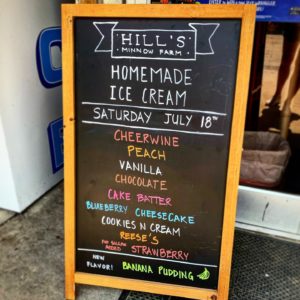 HILL'S
MINNOW FARM
HOMEMADE
ICE CREAM
SATURDAY JULY 18TH
CHEERWINE
PEACH
VANILLA
CHOCOLATE
CAKE BATTER
BLUEBERRY CHEESECAKE
COOKIES N CREAM
REESE'S
NO SUGAR ADDED STRAWBERRY
NEW FLAVOR! BANANA PUDDING